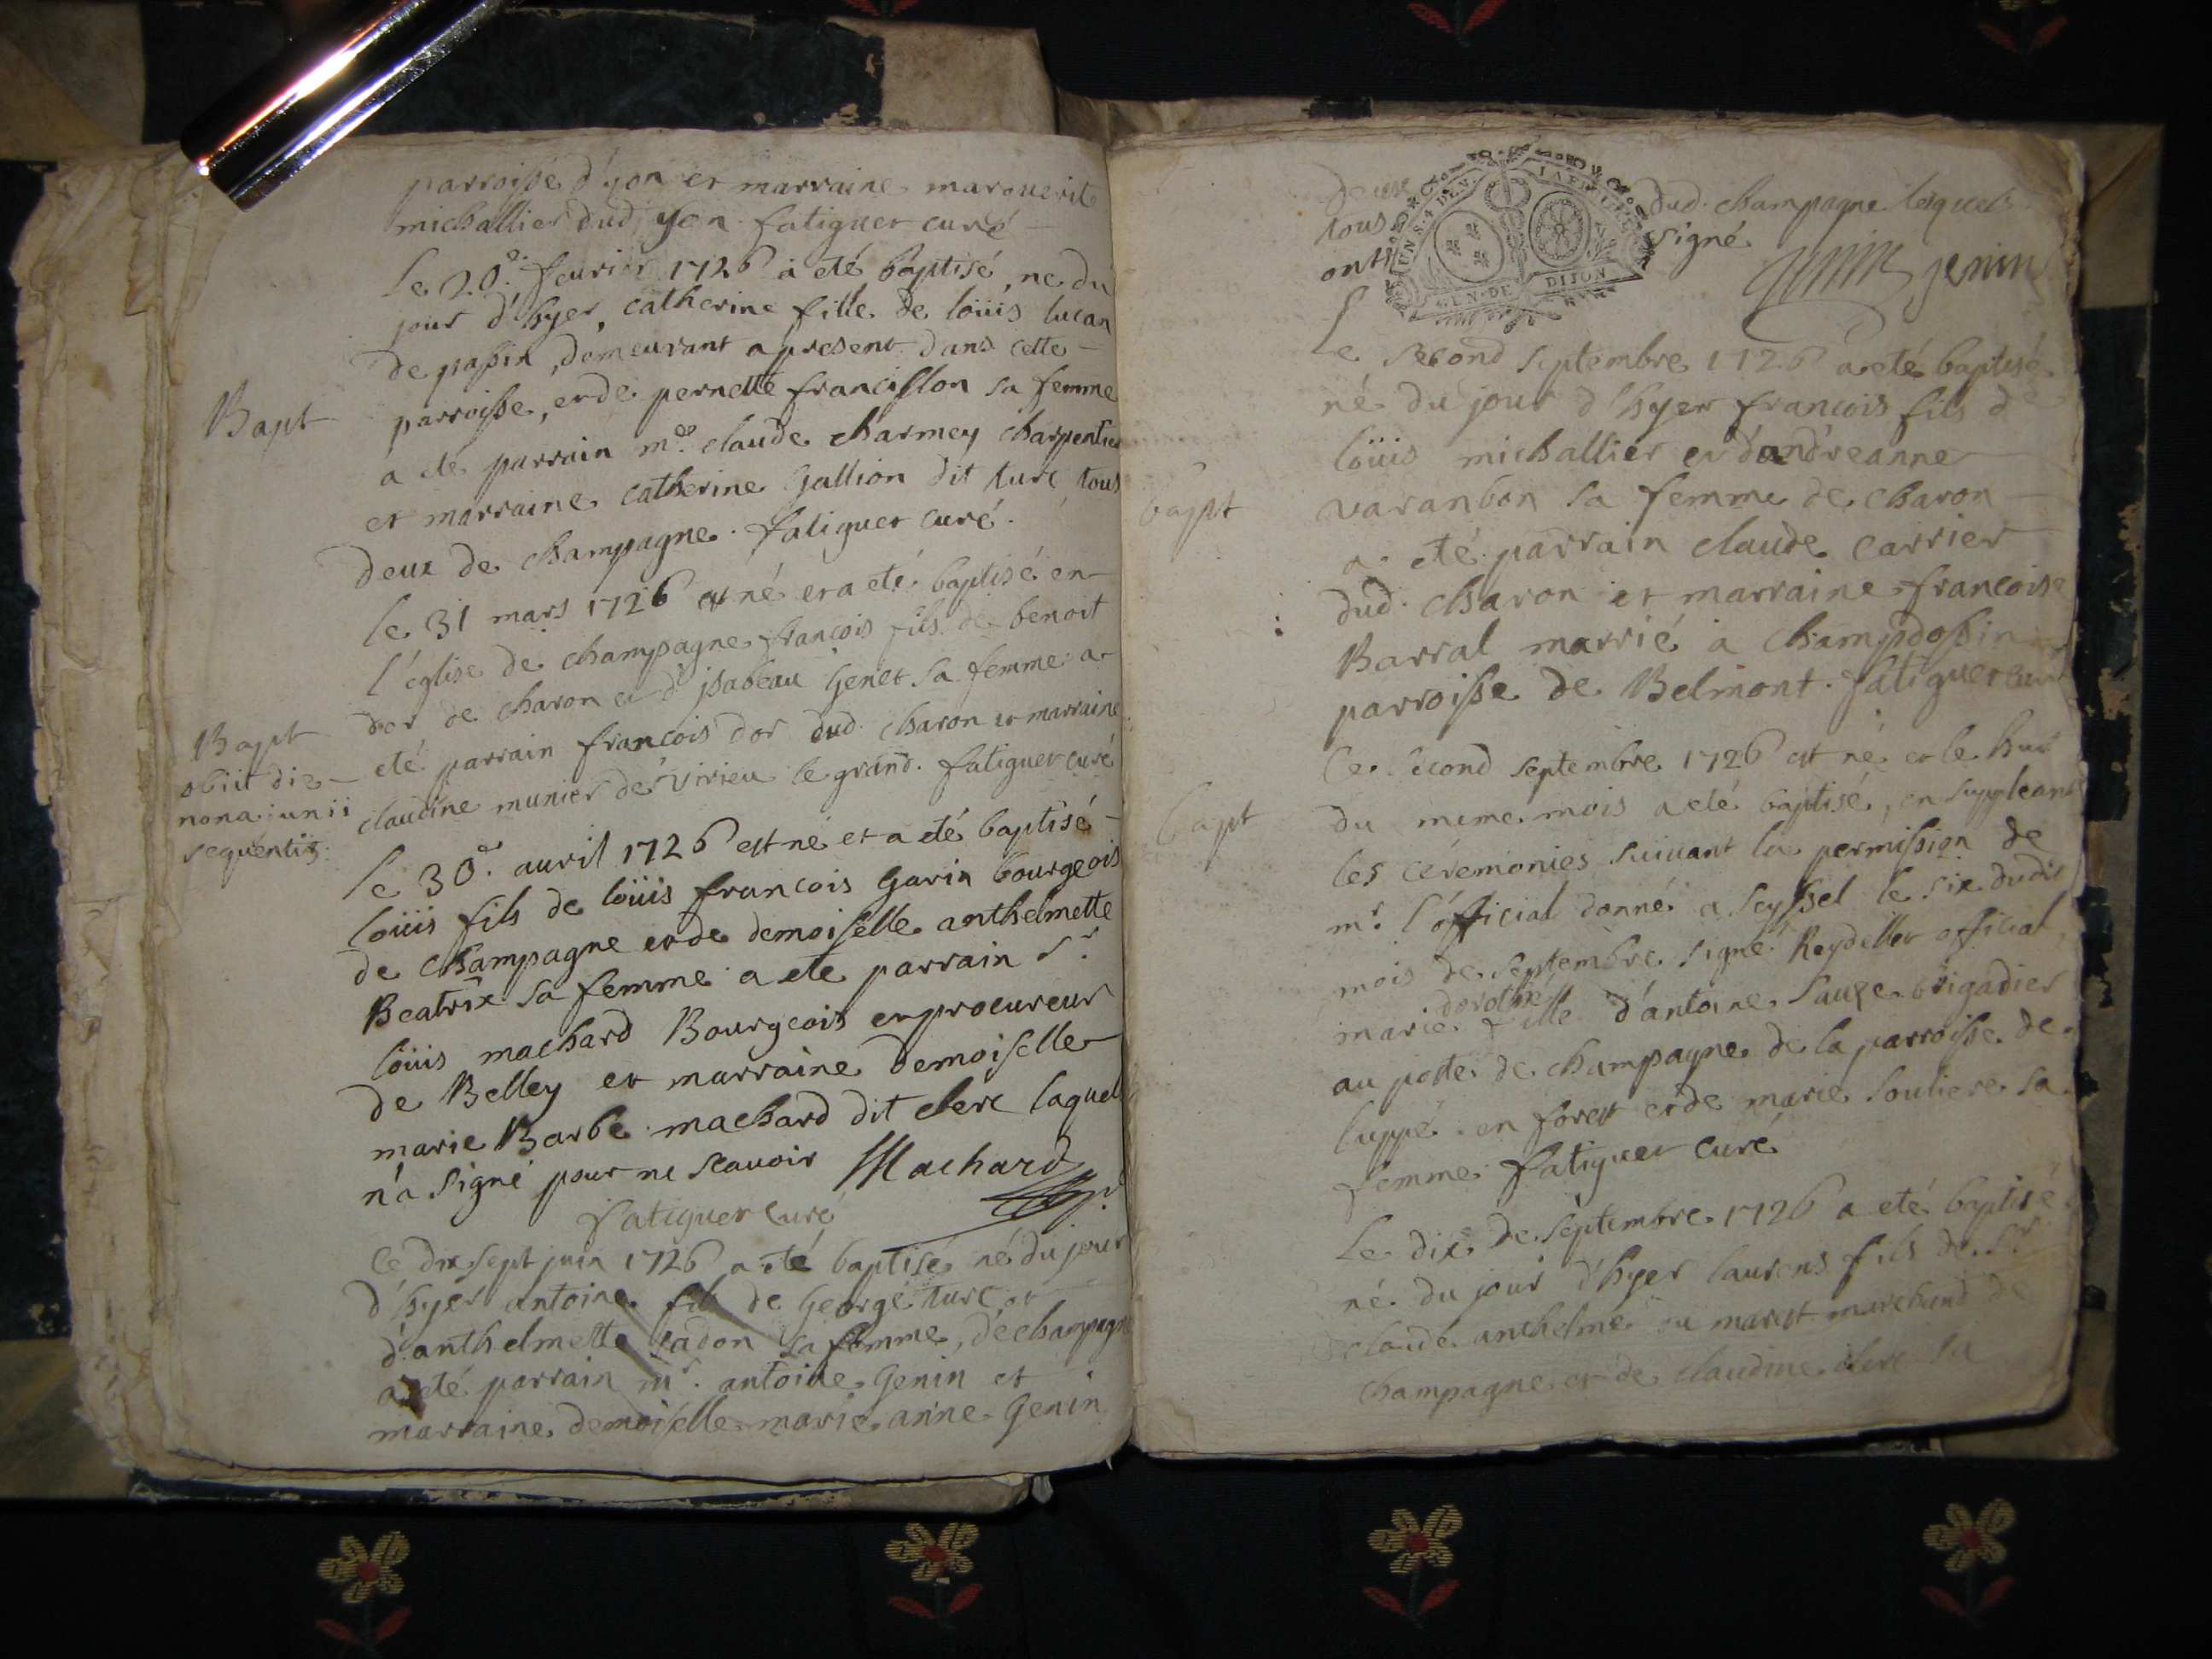 parroisse d'yon et marraine marguerite
michallier dud yon. fatiguet curé
le 20e. feurier 1726 a eté baptisé, ne du
jour d'hyer, catherine fille de loüis lucan
de passin, demeurant apresent dans cette
parroisse, et de pernette francillon sa femme
Bapt
a eté parrain me. claude charmey charpentier
et marraine catherine Gallion dit turc tous
deux de champagne. fatiguet curé.
le 31 mars 1726 est né et a eté baptisé en
l'eglise de champagne francois fils de benoit
dor de charon et d'isabeau Genet sa femme a
eté parrain francois dor dud. charon et marraine
claudine munier de virieu le grand. fatiguet curé
Bapt
obiit die
nona iunii
sequentis.
le 30e. auril 1726 est né et a eté baptisé
loüis fils de loüis francois Garin bourgeois
de champagne et de demoiselle anthelmette
Beatrix sa femme a ete parrain sr.
loüis machard Bourgeois et procureur
de Belley et marraine demoiselle
marie Barbe machard dit clerc laquell
n'a signé pour ne scauoir Machard
fatiguet curé
le dix sept juin 1726 a eté baptisé né du jour
d'hyer antoine fils de George turc et
d'anthelmette cadon sa femme, de champagne
a eté parrain mr. antoine Genin et
marraine demoiselle marie anne Genin
dud. champagne lesquels
tous
signé
ont
GEN. DE DIJON
jenin
Le second septembre 1726 a eté baptisé
né du jour d'hyer francois fils de
loüis michallier et d'andreanne
bapt
varanbon sa femme de charon
a eté parrain claude carrier
dud. charon et marraine francoise
Barral marrié a champdossin
parroisse de Belmont. fatiguet curé
le second septembre 1726 est né et le huit
bapt
du meme mois a eté baptisé, en suppleant
les ceremonies suiuant la permission de
mr. l'official donné a seyssel le six dudit
mois de septembre signé Reydellet official
dorothée
marie fille d'antoine sauze brigadier
au poste de champagne de la parroisse de
luppé en forest et de marie souliere sa
femme fatiguet curé
Le dixe de septembre 1726 a eté baptisé
né du jour d'hyer laurens fils de sr
claude anthelme du marest marchand de
champagne et de claudine clerc sa